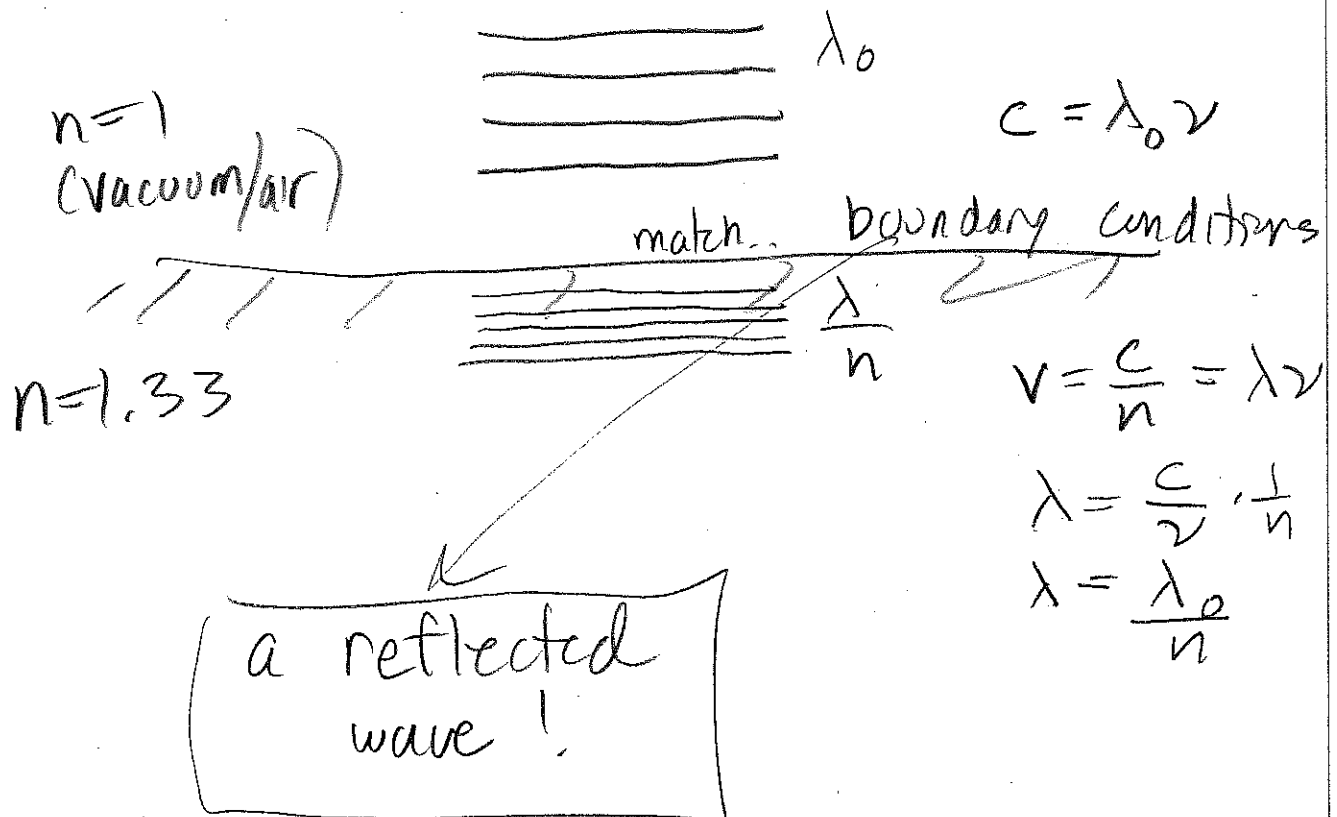 λ₀
n=1
(vacuum/air)
c = λ₀ν
match.. boundary conditions
λ/n
n=1.33
v = c/n = λν
λ = c/ν · 1/n
λ = λ₀/n
a reflected
wave!